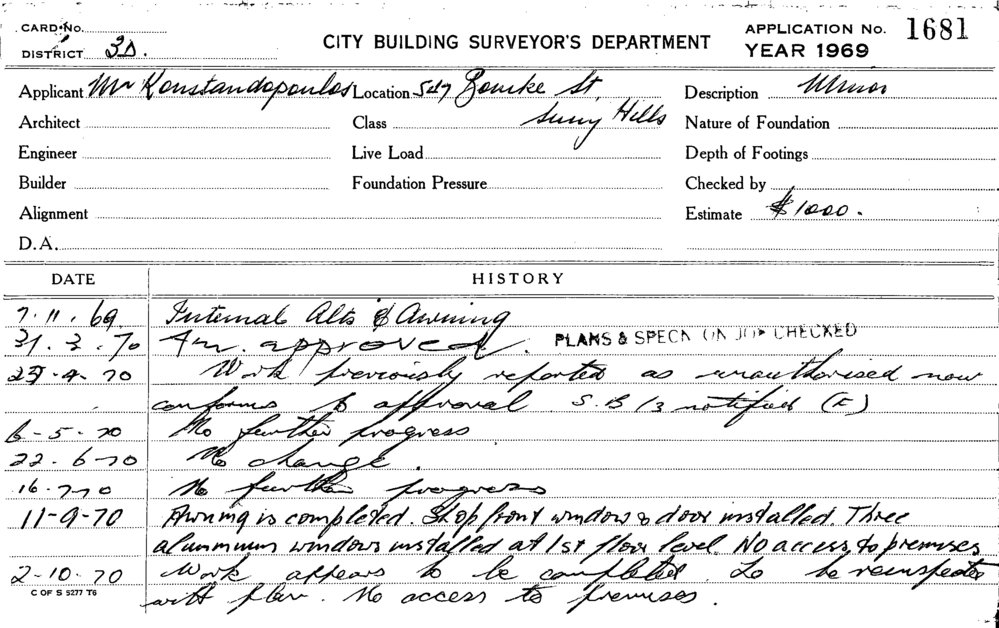 CARD No.
DISTRICT 3D.
CITY BUILDING SURVEYOR'S DEPARTMENT
APPLICATION No. 1681
YEAR 1969
Applicant Mr Konstandopoulos Location 547 Bourke St, Description Minor
Architect Class Surry Hills Nature of Foundation
Engineer Live Load Depth of Footings
Builder Foundation Pressure Checked by
Alignment Estimate $1000.
D.A.
DATE HISTORY
7.11.69 Internal Alts & Awning
31.3.70 approved. PLANS & SPECN ON JOB CHECKED
23-4-70 Work previously reported as unauthorised now
conforms to approval S.B 13 notified (E)
6-5-70 No further progress
22.6-70 No change.
16-7-70 No further progress
11-9-70 Awning is completed. Shopfront window & door installed. Three
aluminium windows installed at 1st floor level. No access to premises
2-10.70 Work appears to be completed. To be reinspected
with plan. No access to premises.
C OF S 5277 T6